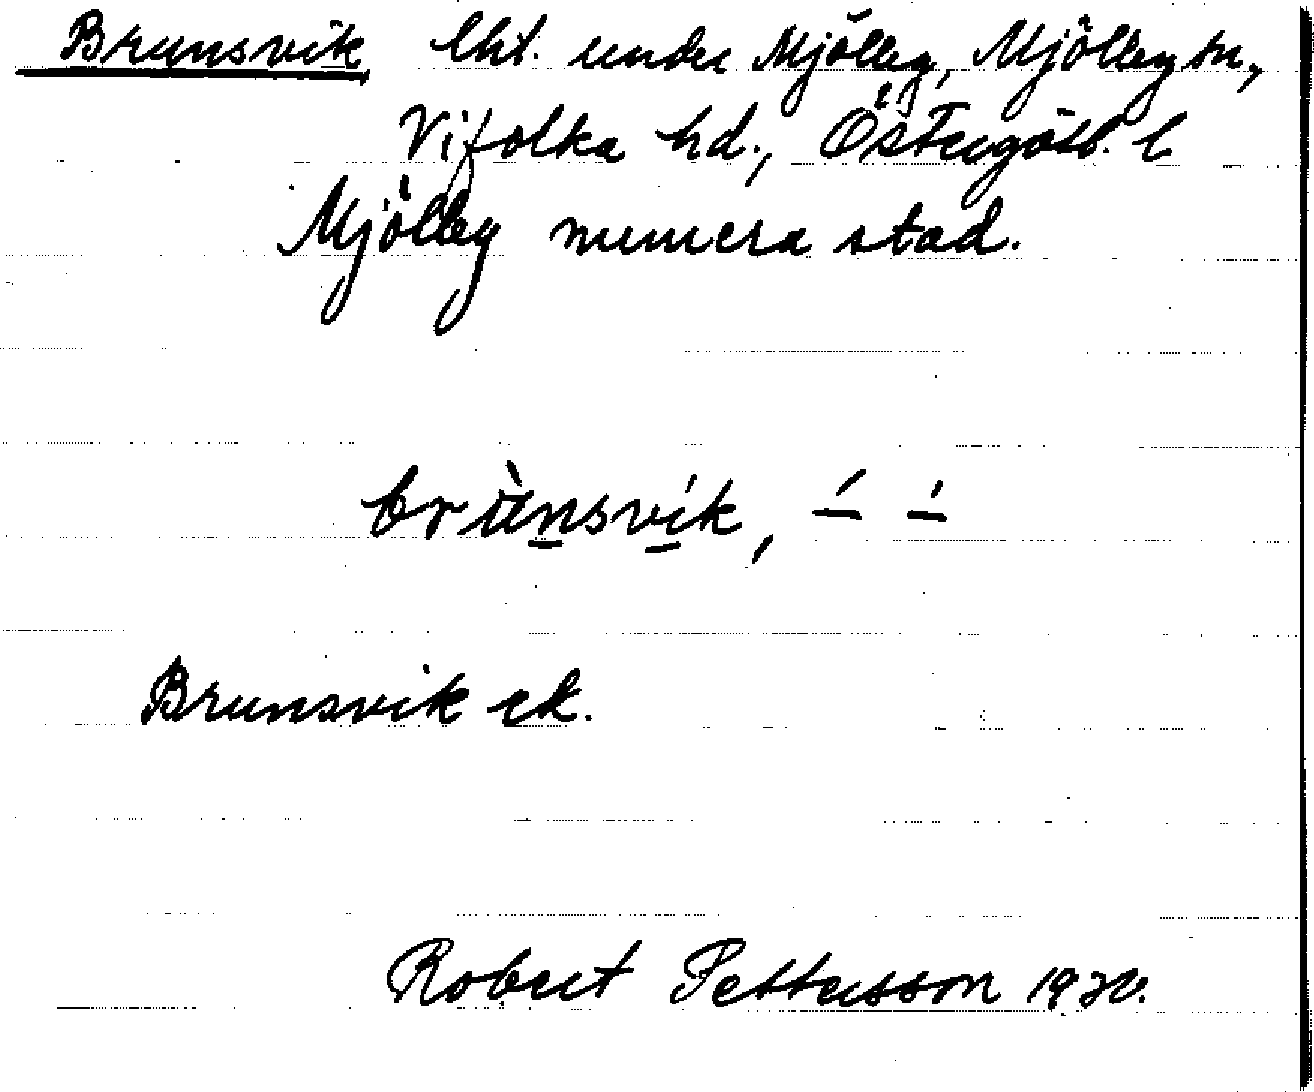 Brunsvik lht. under Mjölby, Mjölby sn,
Vifolka hd., Östergötl. l
Mjölby numera stad.
brùnsvík, – –
Brunsvik ek.
Robert Pettersson